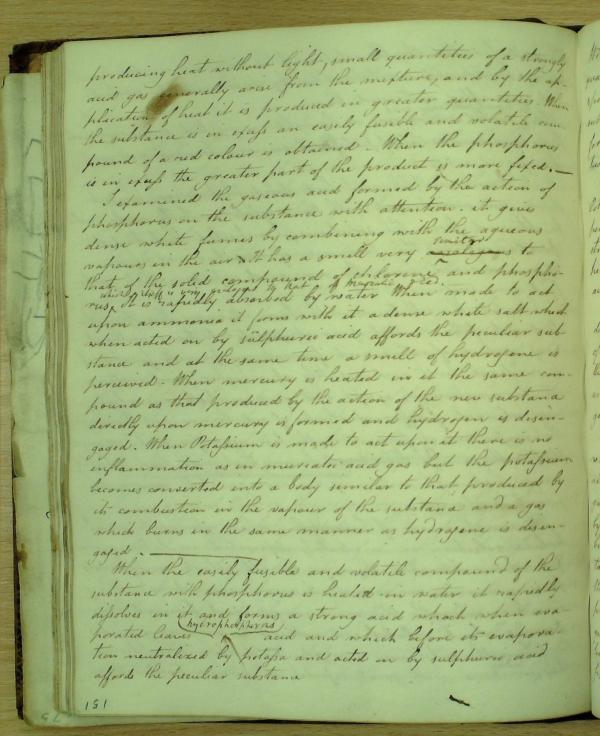 producing heat without light, small quantities of a strongly
acid gas generally arise from the mixture, and by the ap-
plication of heat it is produced in greater quantities. When
the substance is in exceſs an easily fusible and volatile com-
pound of a red colour is obtained - When the phosphorus
is in exceſs the greater part of the product is more fixed. —
I examined the gaseous acid formed by the action of
phosphorus on the substance with attention. it gives
dense white fumes by combining with the aqueous
vapours in the air. It has a smell very similar to
that of the solid compound of chlorine and phospho-
rus, it is rapidly absorbed by water When made to act
upon ammonia it forms with it a dense white salt which
when acted on by sulphuric acid affords the peculiar sub-
stance and at the same time a smell of hydrogene is
perceived - When mercury is heated in it the same com-
pound as that produced by the action of the new substance
directly upon mercury is formed and hydrogen is disen-
gaged. When Potaſsium is made to act upon it there is no
inflammation as in muriatic acid gas but the potaſsium
becomes converted into a body similar to that produced by
its combustion in the vapour of the substance and a gas
which burns in the same manner as hydrogene is disen-
gaged. —
When the easily fusible and volatile compound of the
substance with phosphorus is heated in water it rapidly
diſsolves in it and forms a strong acid which when eva
porated leaves hydrophosphorus acid and which before its evapora-
tion neutralized by potaſsa and acted on by sulphuric acid
affords the peculiar substance
151